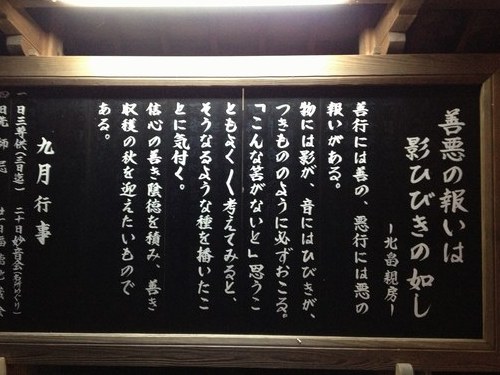 善悪の報いは
影ひびきの如し
ー北畠親房ー
善行には善の、悪行には悪の
報いがある。
物には影が、音にはひびきが、
つきもののように必ずおこる。
「こんな筈がないと」思うこ
ともよく〱考えてみると、
そうなるような種を播いたこ
とに気付く。
信心の善き陰徳を積み、善き
収穫の秋を迎えたいもので
ある。
九月行事
一日三尊供(三日迄)
二十日妙音会(名所めぐり)